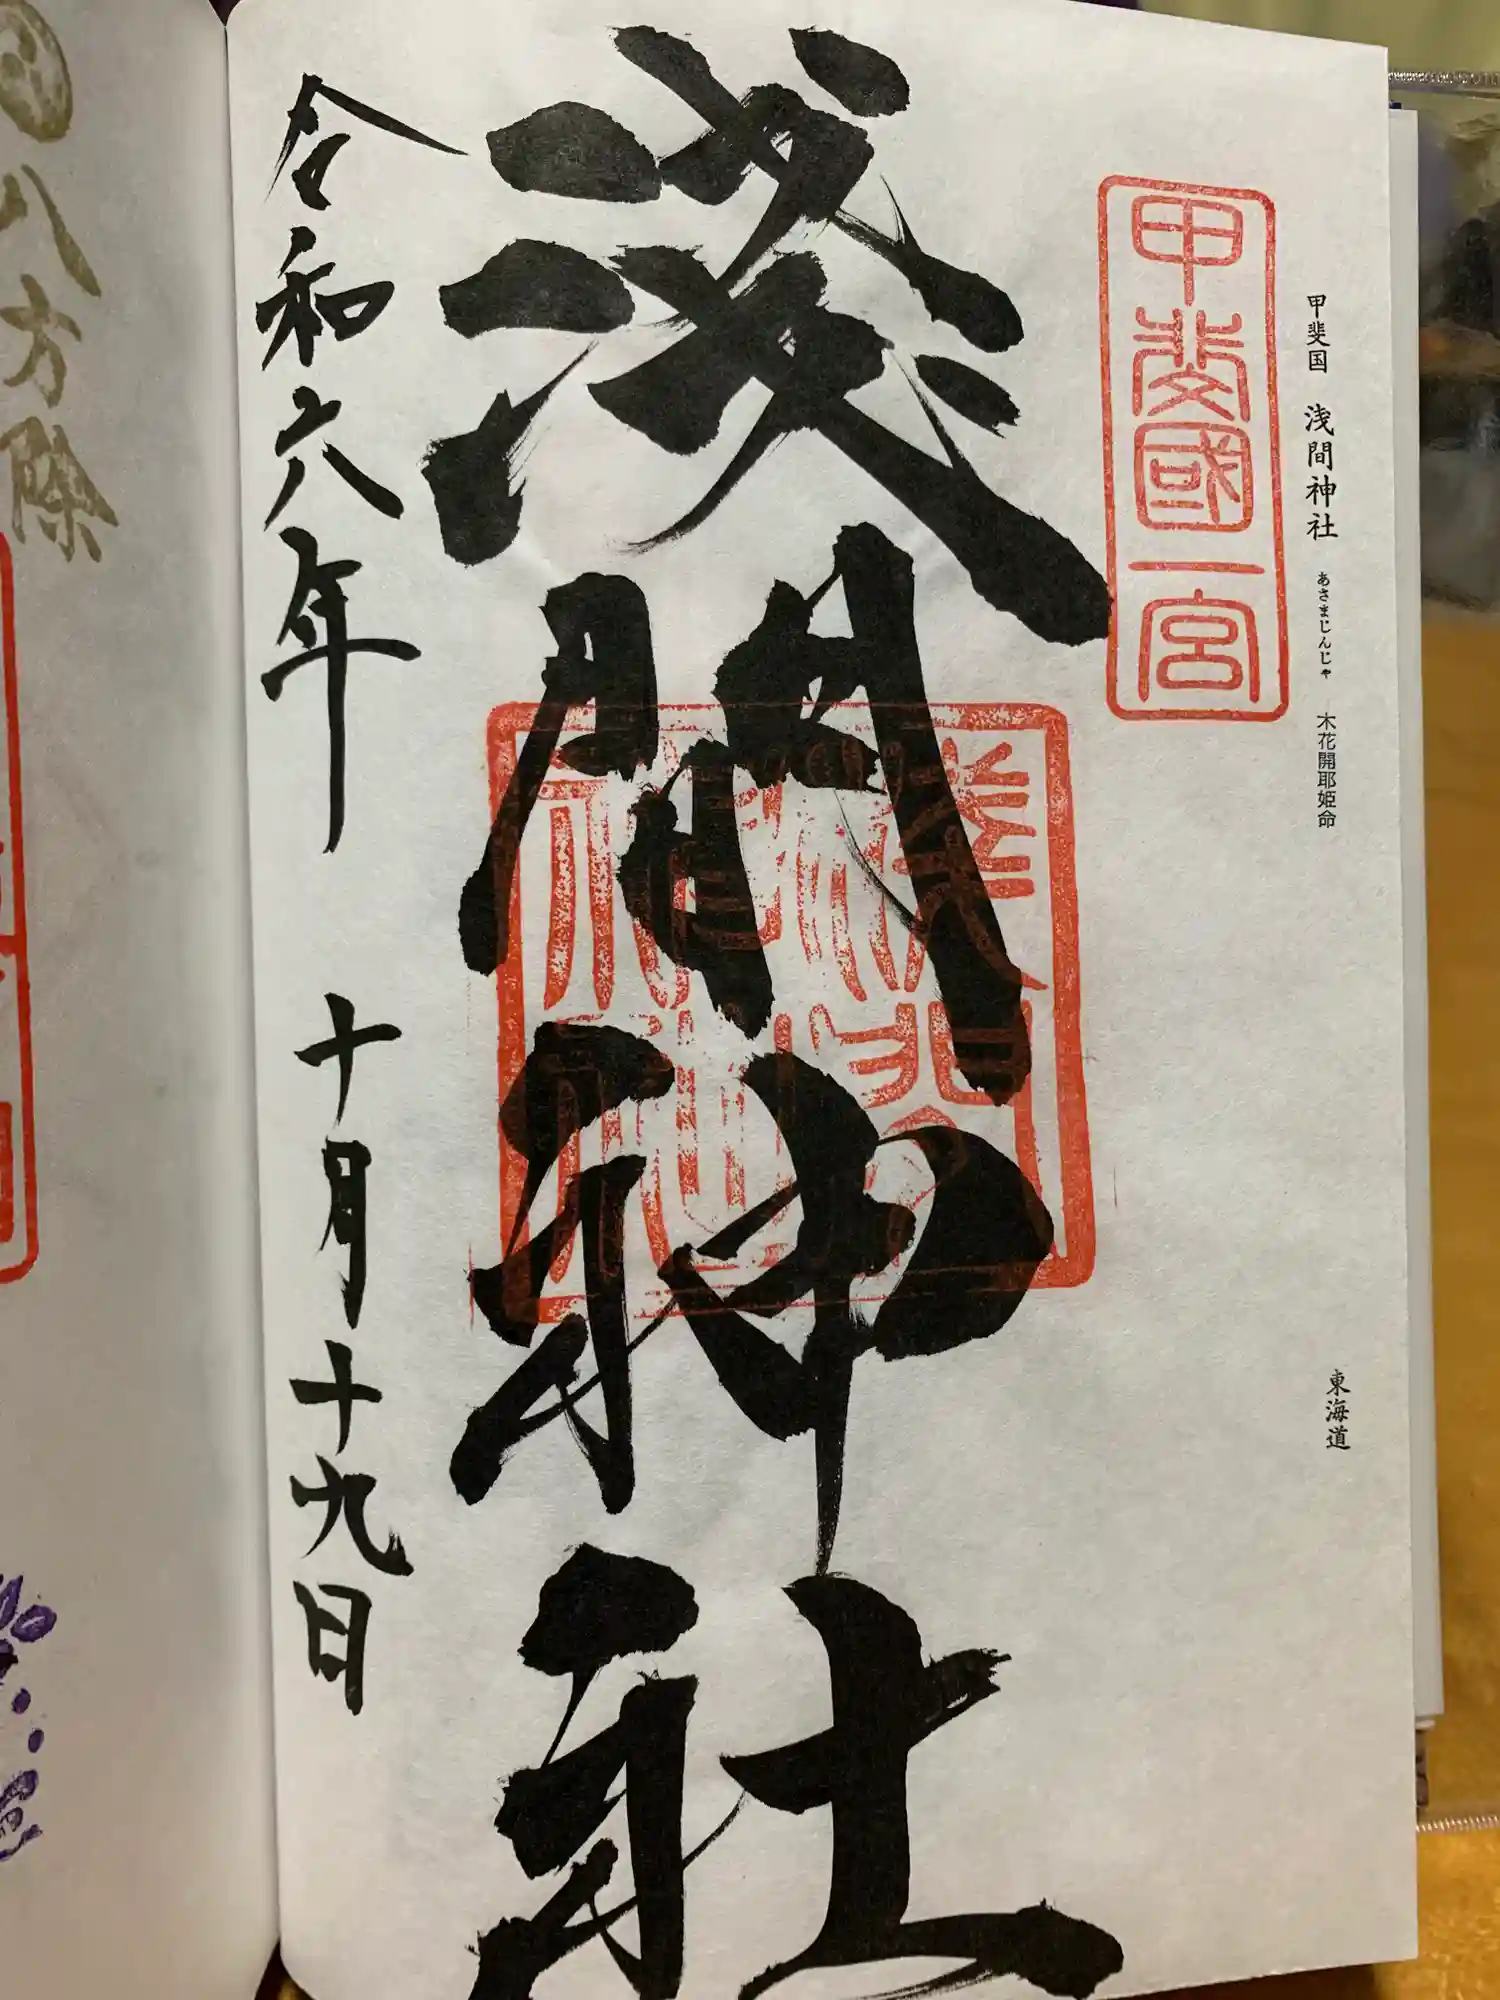 甲斐国 浅間神社 あさまじんじゃ 木花開耶姫命
東海道
甲斐國一宮
浅間神社
令和六年 十月十九日
八方除